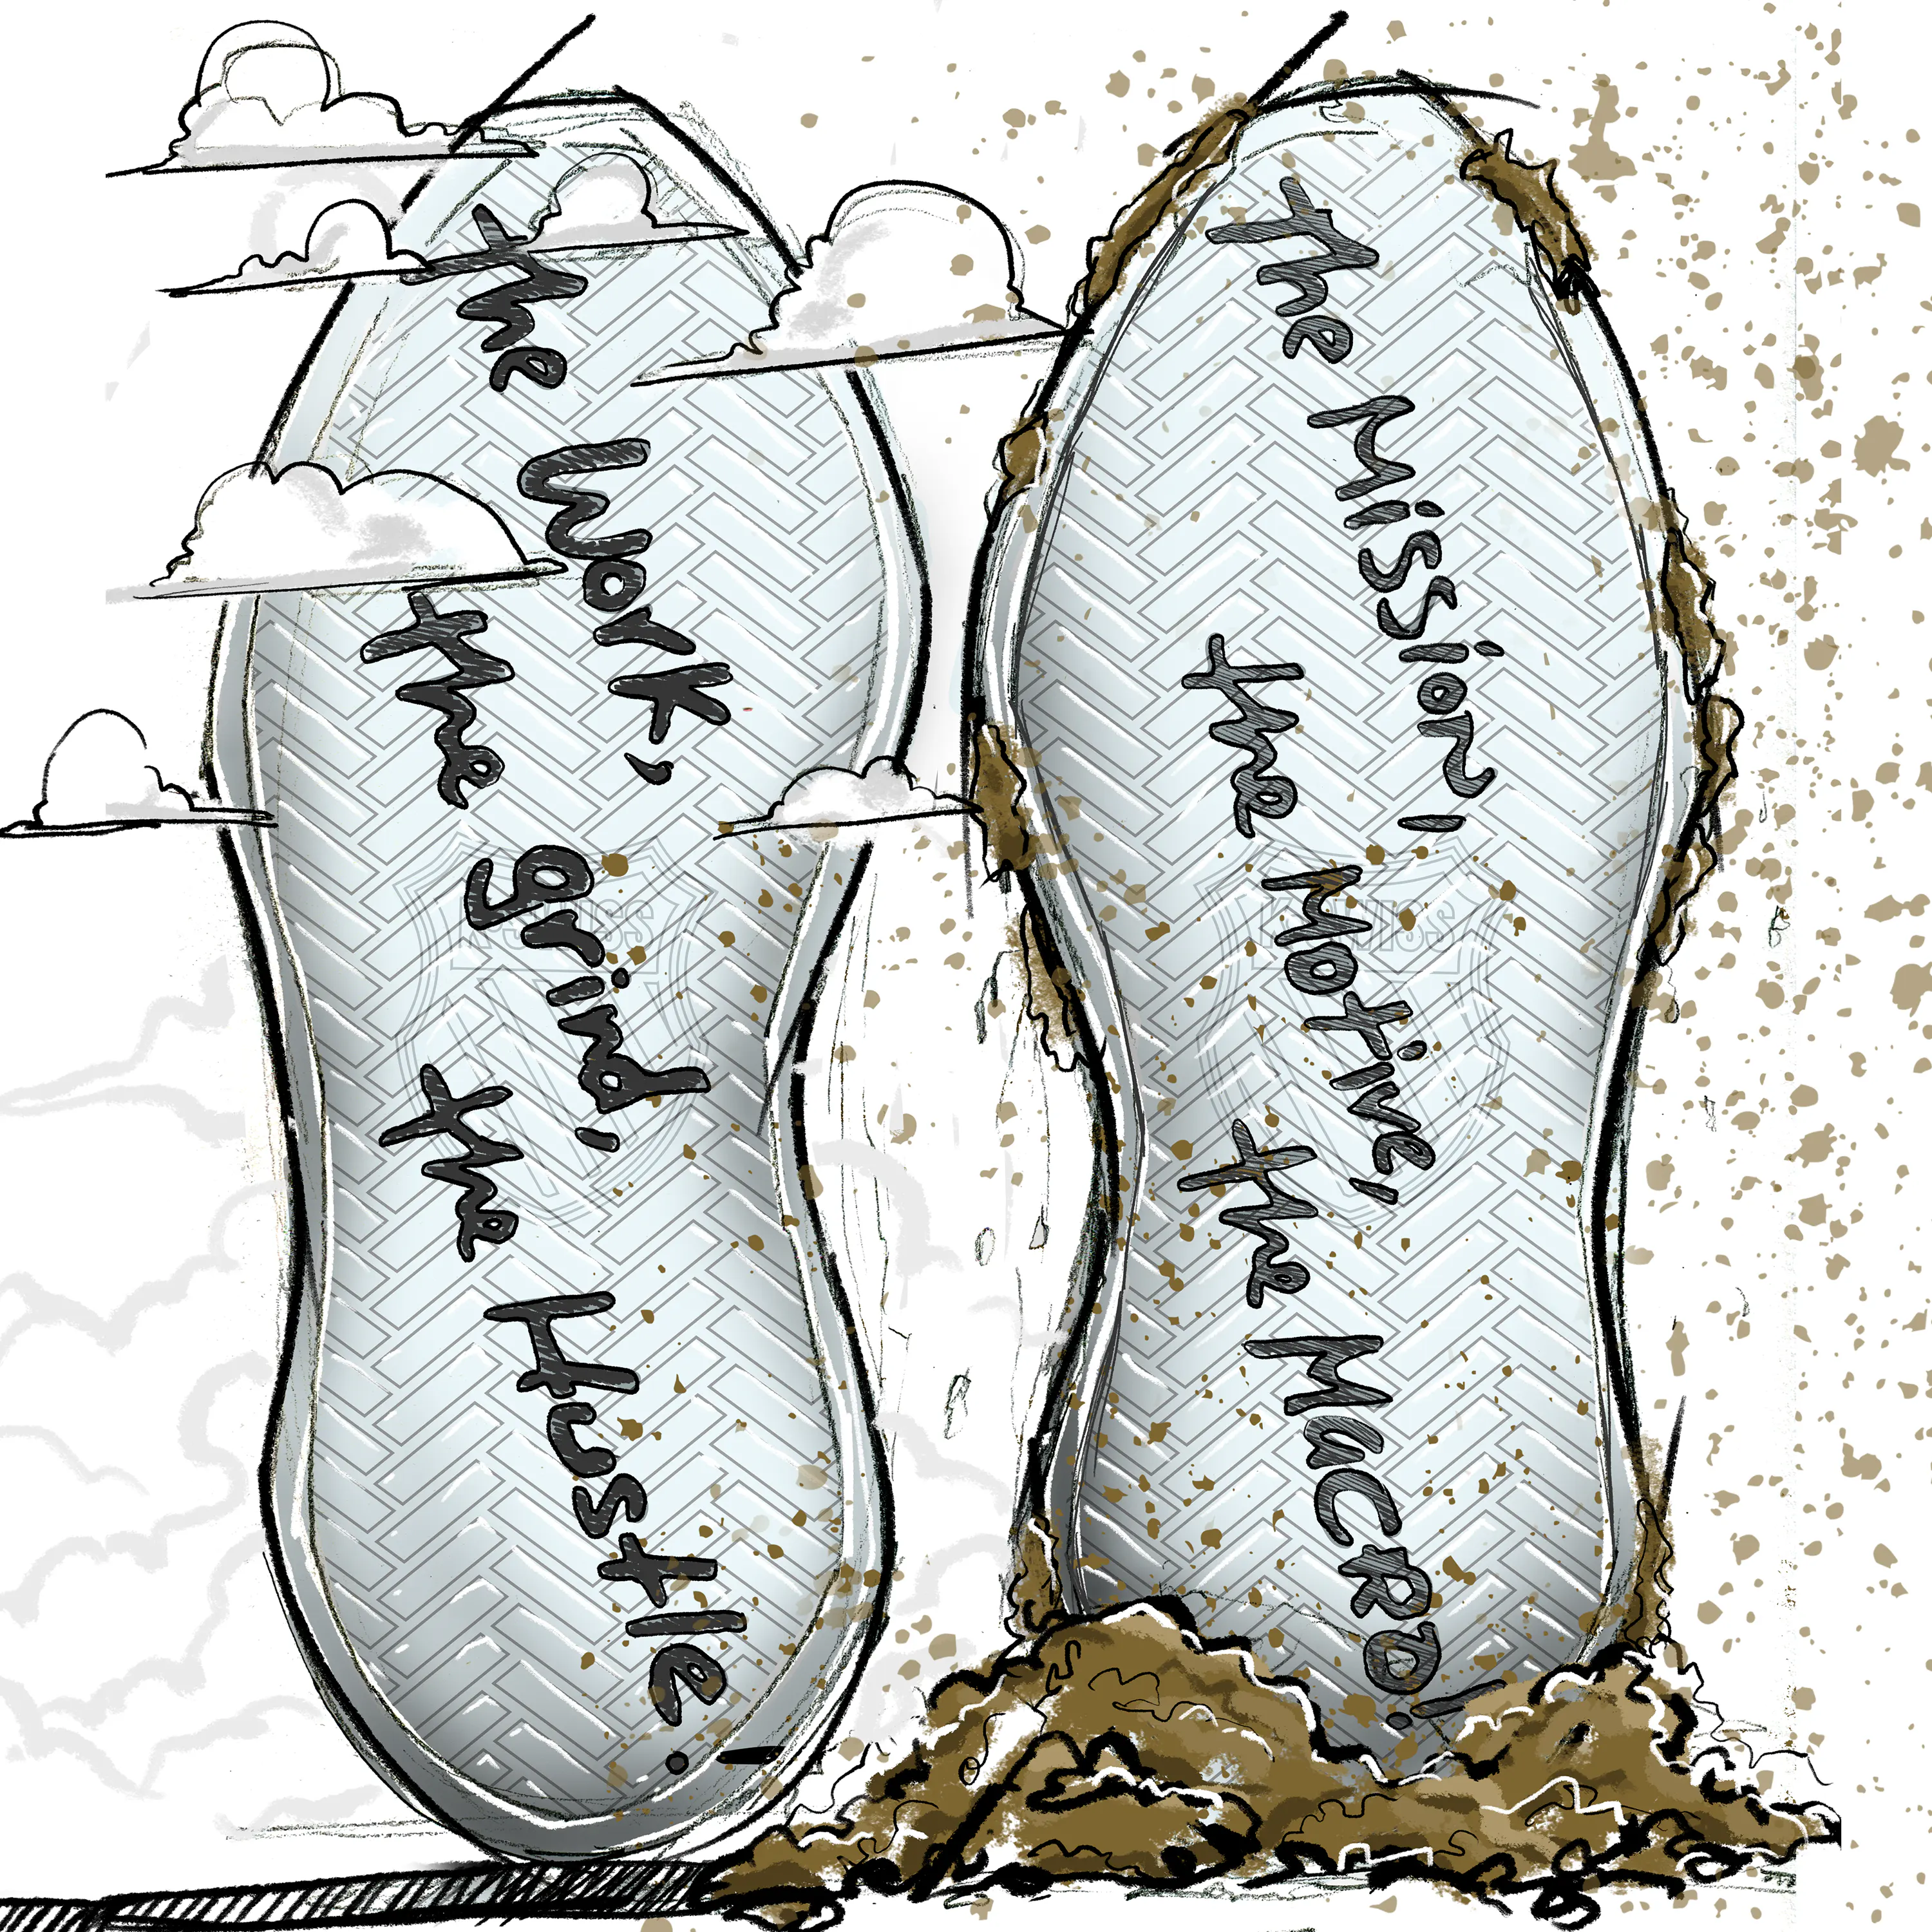 the Work,
the grind,
the Hustle!
K·SWISS
the Mission,
the Motive,
the MaCRO!
K·SWISS